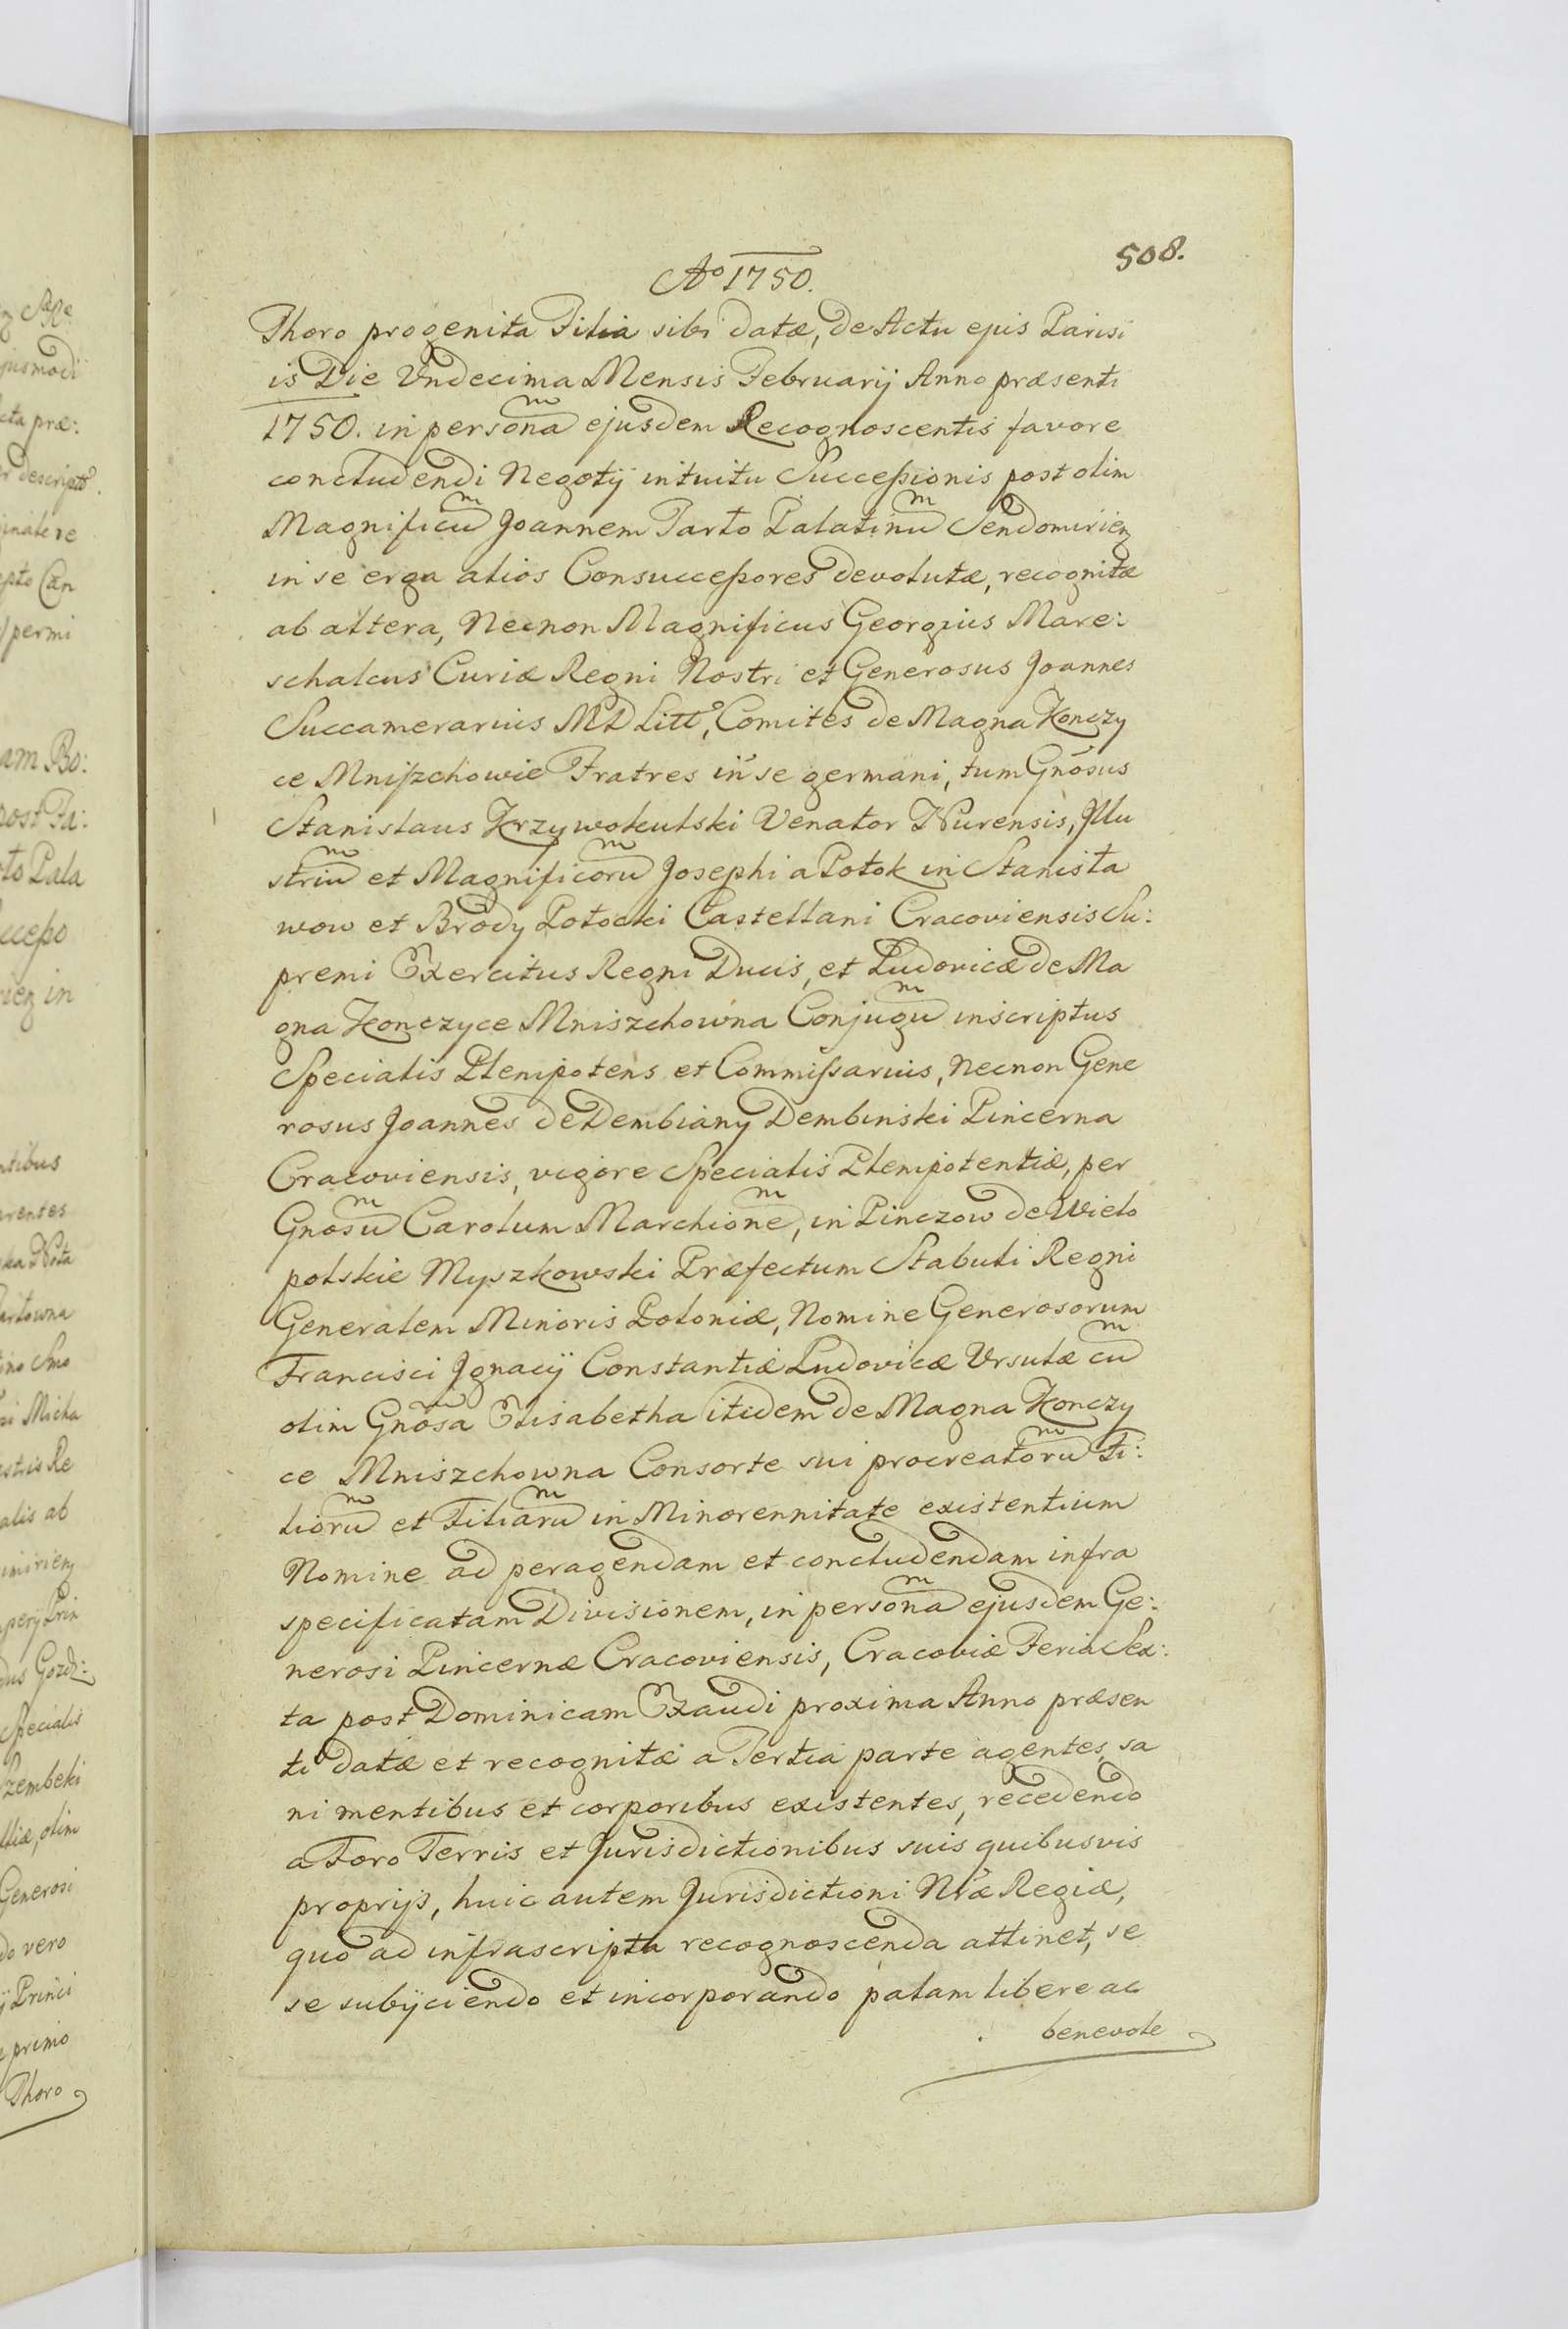 508.
Ao 1750.
Thoro progenita Filia sibi datæ, de Actu ejus Parisi
is Die Undecima Mensis Februarij Anno præsenti
1750. in persona ejusdem Recognoscentis favore
concludendi Negotij intuitu Successionis post olim
Magnificu Joannem Tarło Palatinu Sendomirien
in se erga alios Consuccessores devolutæ, recognitæ
ab altera, Necnon Magnificus Georgius Mare:
schalcus Curiæ Regni Nostri et Generosus Joannes
Succamerarius MD Litt, Comites de Magna Konczy
ce Mniszchowie Fratres in se germani, tum Gnosus
Stanislaus Krzywokulski Venator Nurensis, Illu
striu et Magnificoru Josephi a Potok in Stanisła
wow et Brody Potocki Castellani Cracoviensis Su:
premi Exercitus Regni Ducis, et Ludovicæ de Ma
gna Konczyce Mniszchowna Conjugu inscriptus
Specialis Plenipotens et Commissarius, Necnon Gene
rosus Joannes de Dembiany Dembinski Pincerna
Cracoviensis, vigore Specialis Plenipotentiæ, per
Gnosu Carolum Marchione, in Pinczow de Wielo
polskie Myszkowski Præfectum Stabuli Regni
Generalem Minoris Poloniæ, Nomine Generosorum
Francisci Ignacij Constantiæ Ludovicæ Ursulæ cu
olim Gnosa Elisabetha itidem de Magna Konczy
ce Mniszchowna Consorte sui procreatoru Fi:
lioru et Filiaru in Minorennitate existentium
Nomine ad peragendam et concludendam infra
specificatam Divisionem, in persona ejusdem Ge:
nerosi Pincernæ Cracoviensis, Cracoviæ Feria Sex:
ta post Dominicam Exaudi proxima Anno præsen
ti datæ et recognitæ a Tertia parte agentes, sa
ni mentibus et corporibus existentes, recedendo
a Foro Terris et Jurisdictionibus suis quibusvis
proprijs, huic autem Jurisdictioni Nræ Regiæ,
quo ad infrascripta recognoscenda attinet, se
se subijciendo et incorporando palam libere ac
benevole